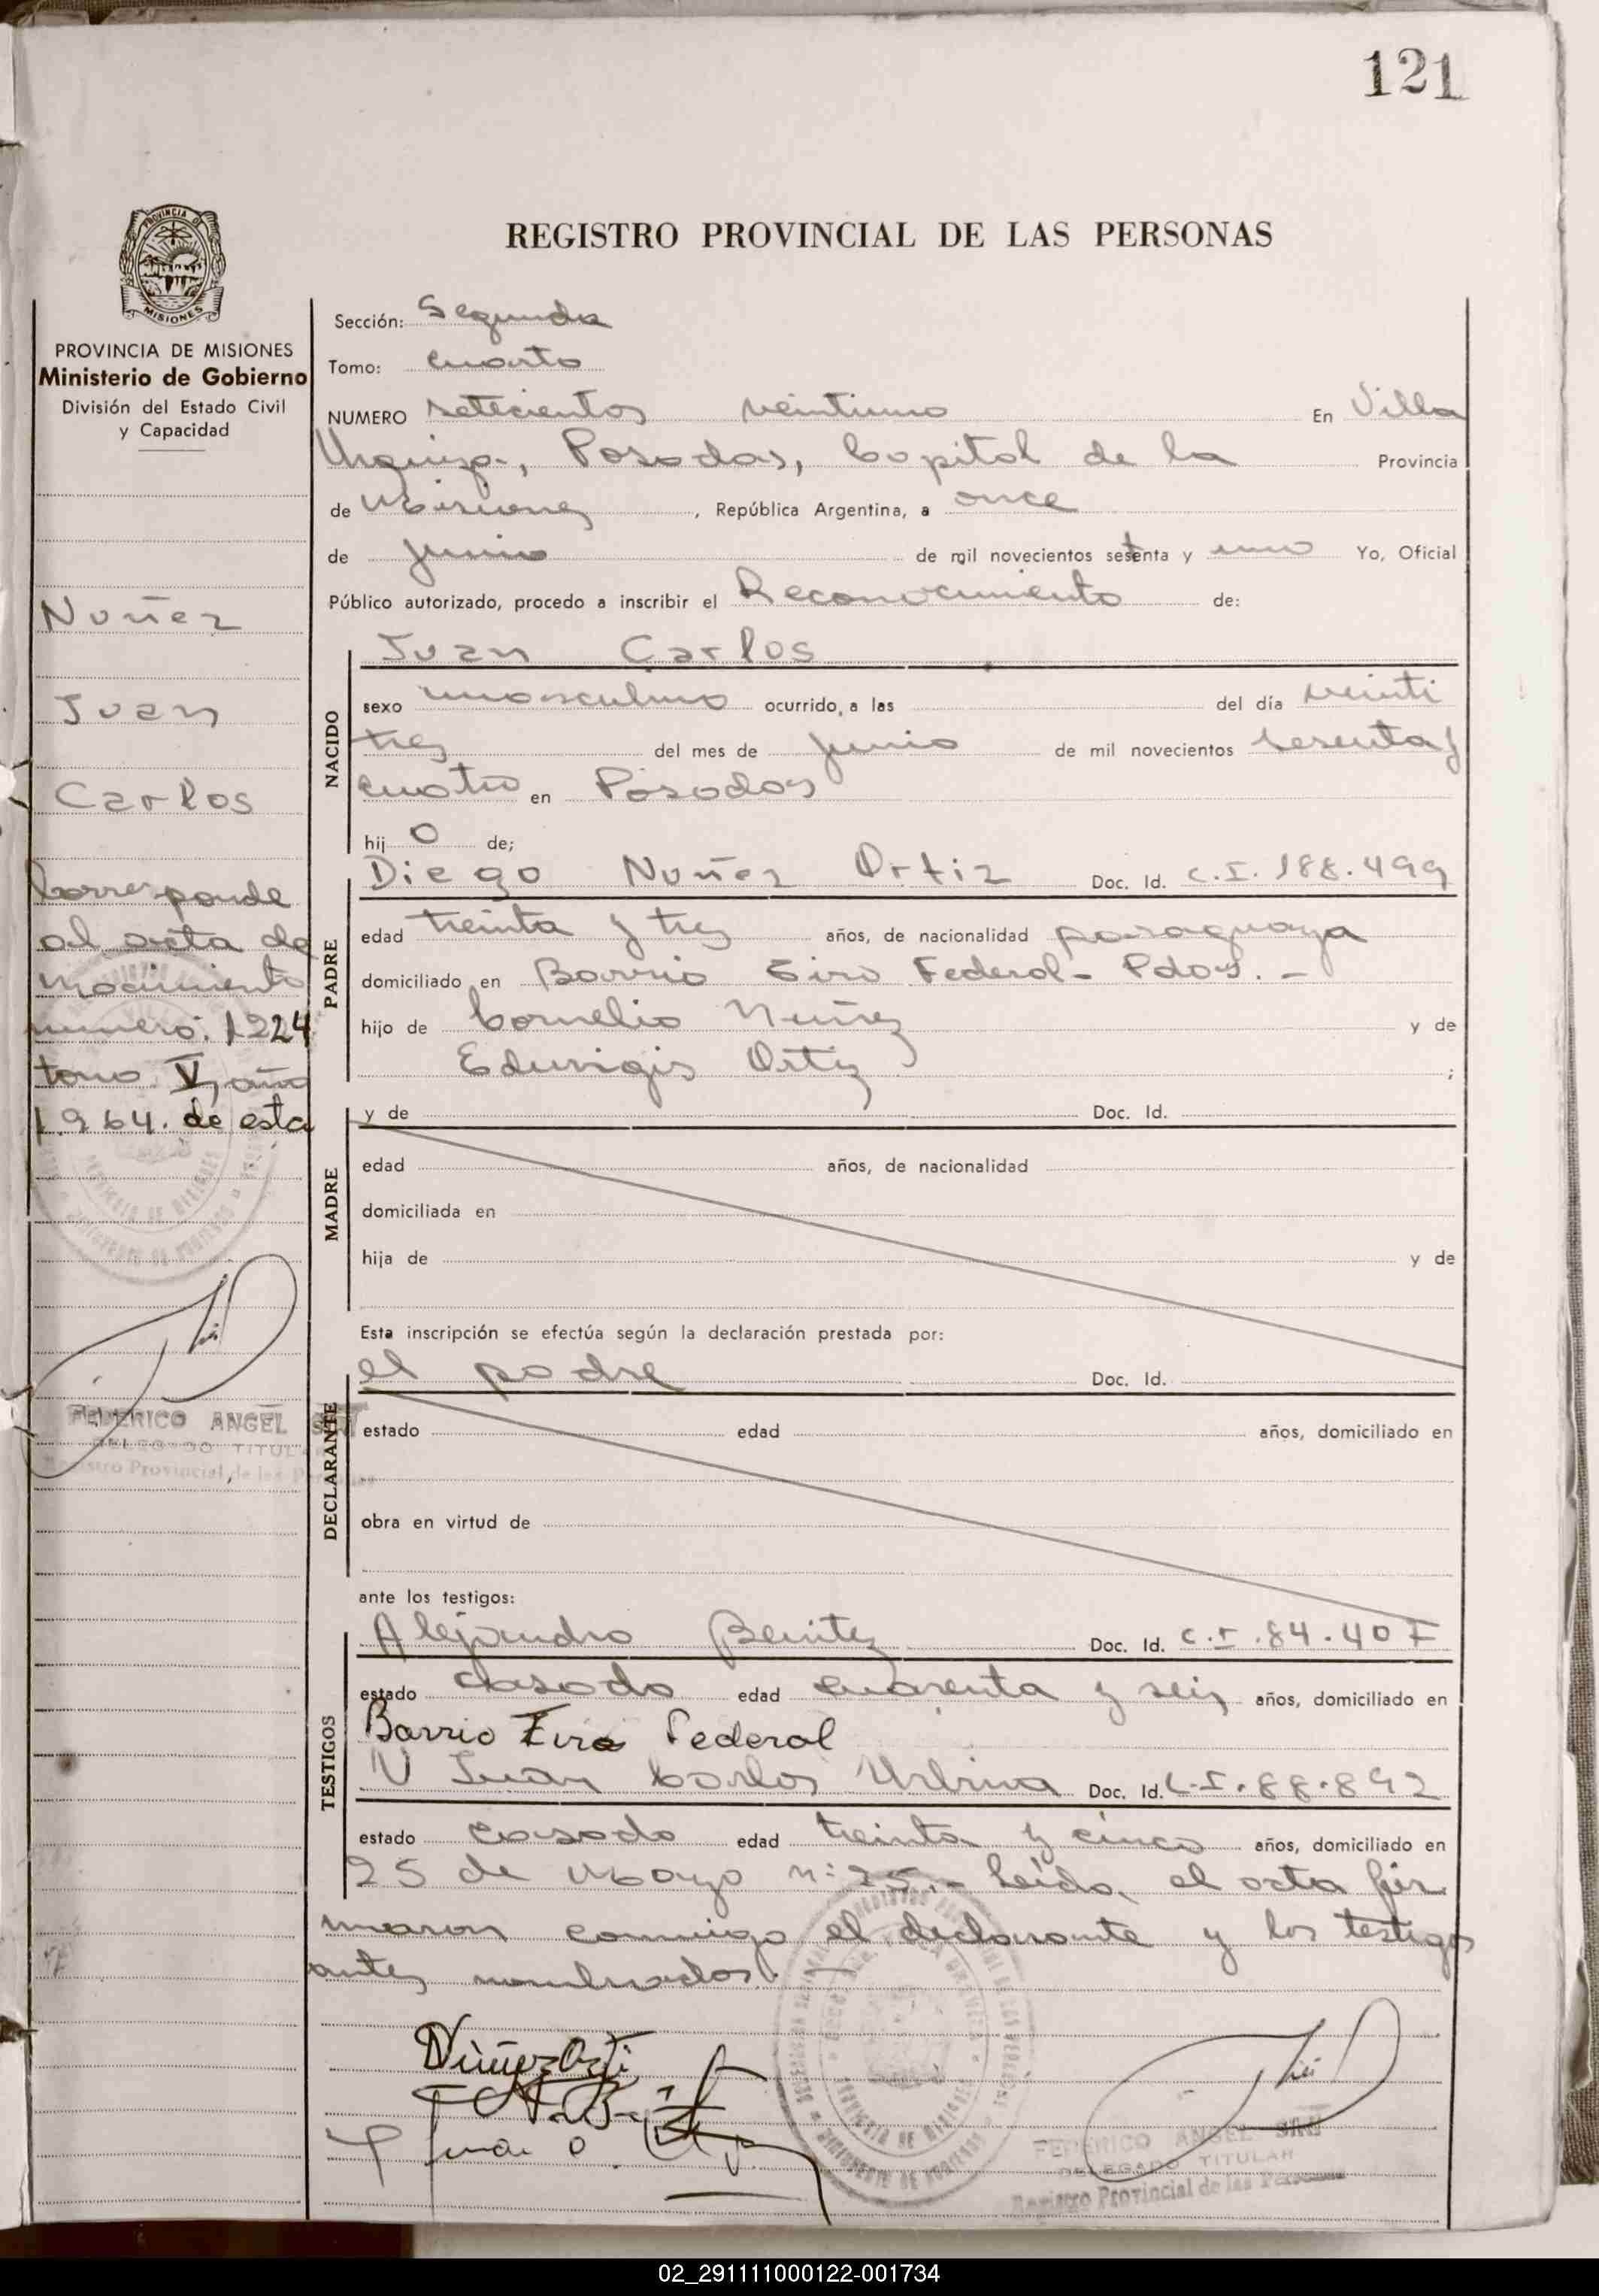 121
REGISTRO PROVINCIAL DE LAS PERSONAS
PROVINCIA DE MISIONES
Ministerio de Gobierno
División del Estado Civil
y Capacidad
Nuñez
Juan
Carlos
Corresponde
al acta de
nacimiento
numero: 1224
tomo V, año
1964. de esta
FEDERICO ANGEL
DELEGADO TITULAR
Registro Provincial de las Personas
Sección: Segunda
Tomo: cuarto
NUMERO setecientos veintiuno En Villa
Urquiza, Posadas, Capital de la Provincia
de Misiones, República Argentina, a once
de junio de mil novecientos setenta y uno Yo, Oficial
Público autorizado, procedo a inscribir el Reconocimiento de:
NACIDO
Juan Carlos
sexo masculino ocurrido, a las del día veinti
tres del mes de junio de mil novecientos sesenta y
cuatro en Posadas
hij o de;
PADRE
Diego Nuñez Ortiz Doc. Id. C.I. 188.499
edad treinta y tres años, de nacionalidad paraguaya
domiciliado en Barrio Tiro Federal - Pdas. -
hijo de Cornelio Nuñez y de
Eduvigis Ortiz ;
MADRE
y de Doc. Id.
edad años, de nacionalidad
domiciliada en
hija de y de
Esta inscripción se efectúa según la declaración prestada por:
DECLARANTE
el padre Doc. Id.
estado edad años, domiciliado en
obra en virtud de
ante los testigos:
TESTIGOS
Alejandro Benitez Doc. Id. C.I. 84.407
estado casado edad cuarenta y seis años, domiciliado en
Barrio Tiro Federal
Juan Carlos Urbina Doc. Id. C.I. 88.892
estado casado edad treinta y cinco años, domiciliado en
25 de Mayo n: 25.- Leída el acta fir
maron conmigo el declarante y los testigos
antes nombrados. -
Nuñez Orti
FEDERICO ANGEL
DELEGADO TITULAR
Registro Provincial de las Personas
02_291111000122-001734